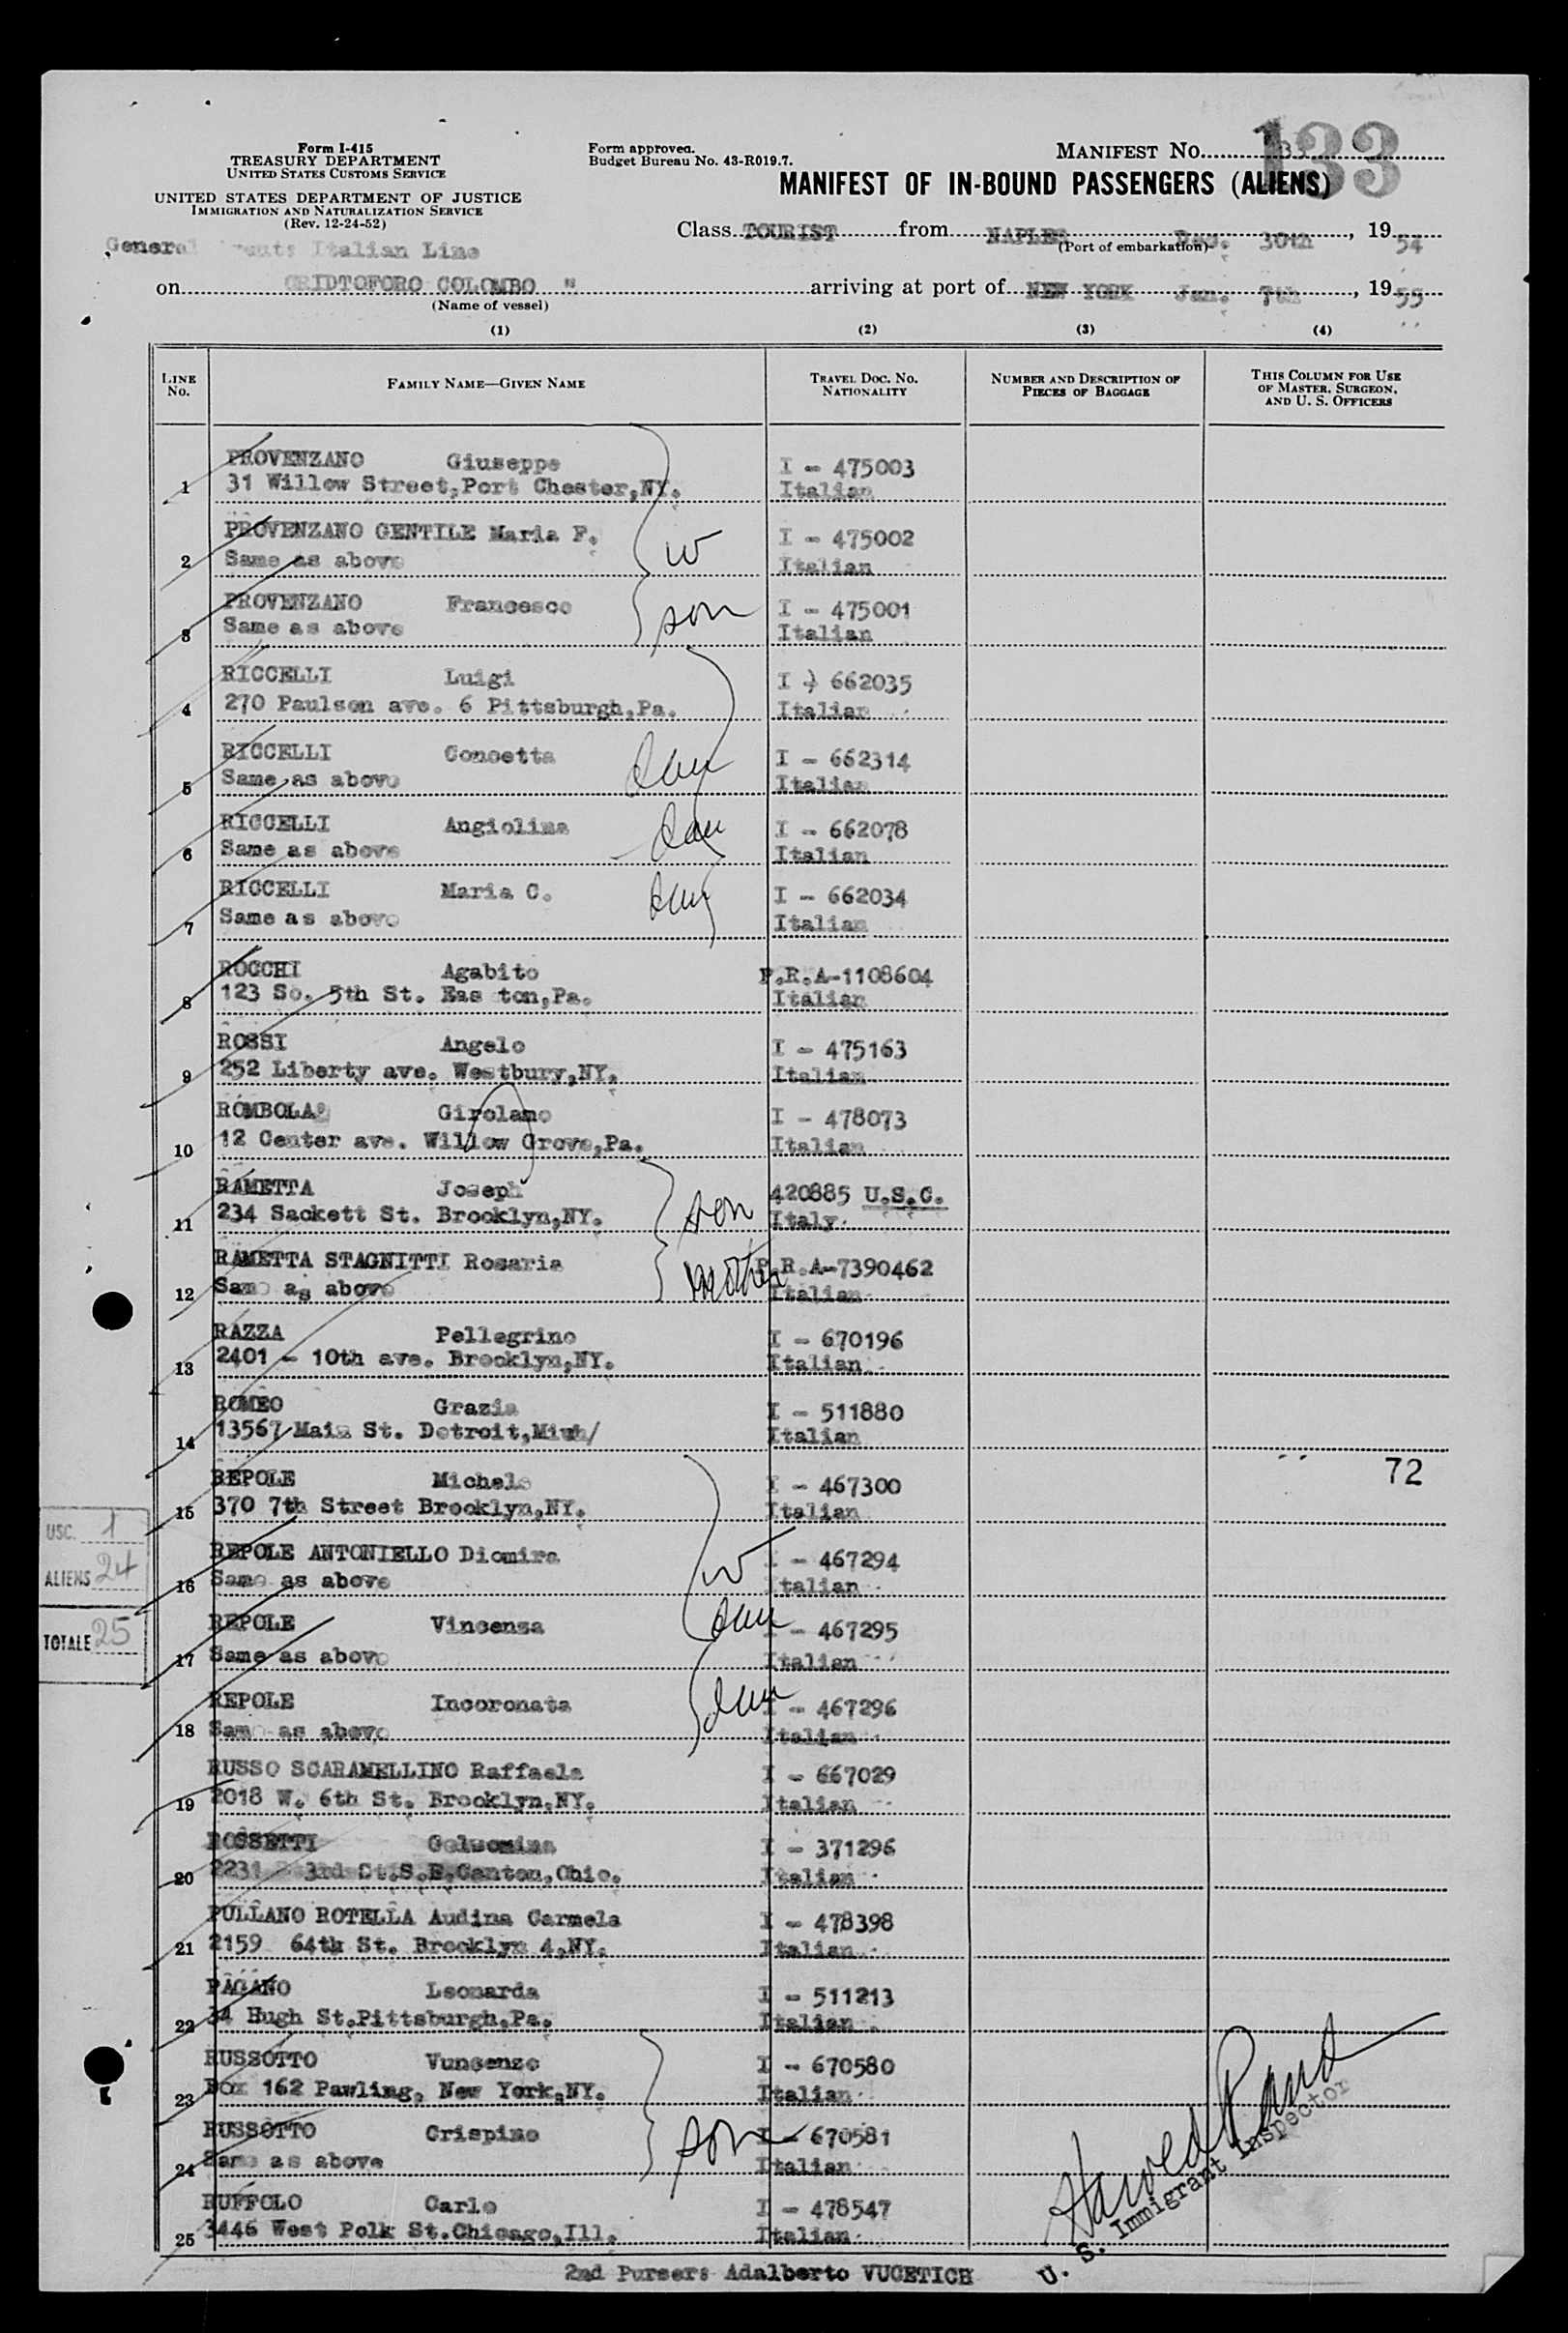 Form I-415
TREASURY DEPARTMENT
UNITED STATES CUSTOMS SERVICE
UNITED STATES DEPARTMENT OF JUSTICE
IMMIGRATION AND NATURALIZATION SERVICE
(Rev. 12-24-52)
Form approved.
Budget Bureau No. 43-R019.7.
MANIFEST NO. 133
MANIFEST OF IN-BOUND PASSENGERS (ALIENS)
Class TOURIST from NAPLES Dec. 30th, 1954
(Port of embarkation)
General Italian Line
on CRIDTOFORO COLOMBO " arriving at port of NEW YORK Jan. 7th, 1955
(Name of vessel)
(1) (2) (3) (4)
LINE No. FAMILY NAME—GIVEN NAME TRAVEL DOC. NO. NATIONALITY NUMBER AND DESCRIPTION OF PIECES OF BAGGAGE THIS COLUMN FOR USE OF MASTER, SURGEON, AND U. S. OFFICERS
PROVENZANO Giuseppe I - 475003
1 31 Willow Street,Port Chester,NY. Italian
PROVENZANO GENTILE Maria F. w I - 475002
2 Same as above Italian
PROVENZANO Francesco son I - 475001
3 Same as above Italian
RICCELLI Luigi I - 662035
4 270 Paulson ave. 6 Pittsburgh,Pa. Italian
RICCELLI Concetta dau I - 662314
5 Same as above Italian
RICCELLI Angiolina dau I - 662078
6 Same as above Italian
RICCELLI Maria C. dau I - 662034
7 Same as above Italian
ROCCHI Agabito P.R.A-1108604
8 123 So. 5th St. Eas ton,Pa. Italian
ROSSI Angelo I - 475163
9 252 Liberty ave. Westbury,NY. Italian
ROMBOLA Girolamo I - 478073
10 12 Center ave. Willow Grove,Pa. Italian
RAMETTA Joseph son 420885 U.S.C.
11 234 Sackett St. Brooklyn,NY. Italy
RAMETTA STAGNITTI Rosaria mother P.R.A-7390462
12 Same as above Italian
RAZZA Pellegrino I - 670196
13 2401 - 10th ave. Brooklyn,NY. Italian
ROMEO Grazia I - 511880
14 13567 Main St. Detroit,Miuh/ Italian
72
REPOLE Michele I - 467300
15 370 7th Street Brooklyn,NY. Italian
REPOLE ANTONIELLO Diomira w I - 467294
16 Same as above Italian
REPOLE Vincenza dau I - 467295
17 Same as above Italian
REPOLE Incoronata dau I - 467296
18 Same as above Italian
RUSSO SCARAMELLINO Raffaela I - 667029
19 2018 W. 6th St. Brooklyn.NY. Italian
ROSSETTI Gelsomina I - 371296
20 2231 3rd St.S.E.Canton,Ohio. Italian
PULLANO ROTELLA Audina Carmela I - 478398
21 2159 64th St. Brooklyn 4,NY. Italian
PAGANO Leonarda I - 511213
22 34 Hugh St.Pittsburgh,Pa. Italian
RUSSOTTO Vuncenzo I - 670580
23 Box 162 Pawling, New York,NY. Italian
RUSSOTTO Crispino son I - 670581
24 Same as above Italian
RUFFOLO Carlo I - 478547
25 3446 West Polk St.Chicago,Ill. Italian
USC. 1
ALIENS 24
TOTALE 25
U. S. Immigrant Inspector
2nd Pursers Adalberto VUCETICH